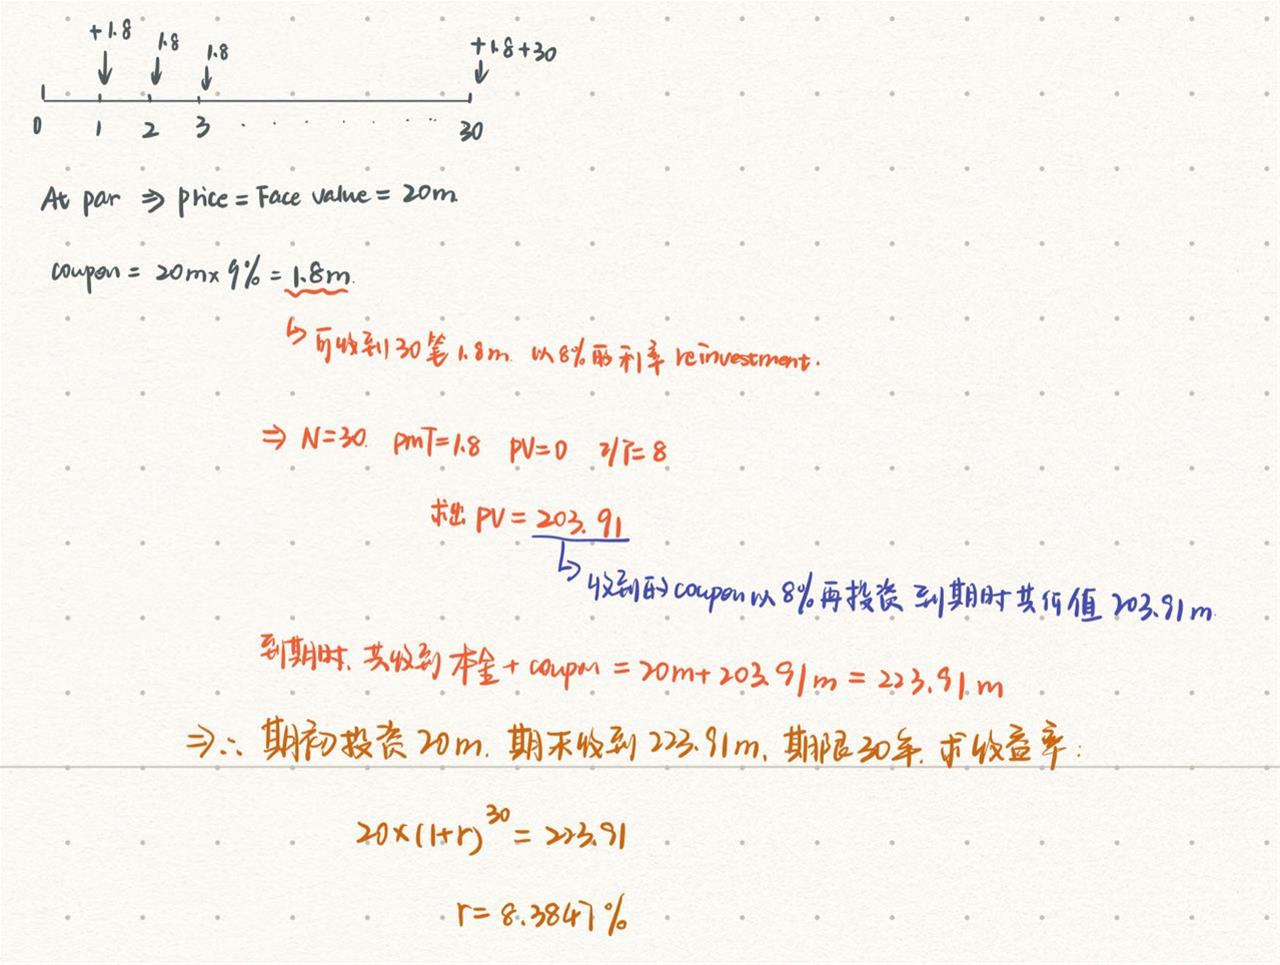 +1.8 1.8 1.8 +1.8+30
0 1 2 3 . . . . . . . 30
At par ⇒ price = Face value = 20m
coupon = 20m×9% = 1.8m.
↳ 可收到30笔1.8m. 以8%的利率reinvestment.
⇒ N=30. PMT=1.8 PV=0 I/Y=8
求出 PV = 203.91
↳ 收到的coupon以8%再投资 到期时共价值 203.91m
到期时, 共收到 本金 + coupon = 20m+203.91m = 223.91m
⇒∴ 期初投资20m. 期末收到223.91m, 期限30年. 求收益率:
20×(1+r)^30 = 223.91
r= 8.3847%